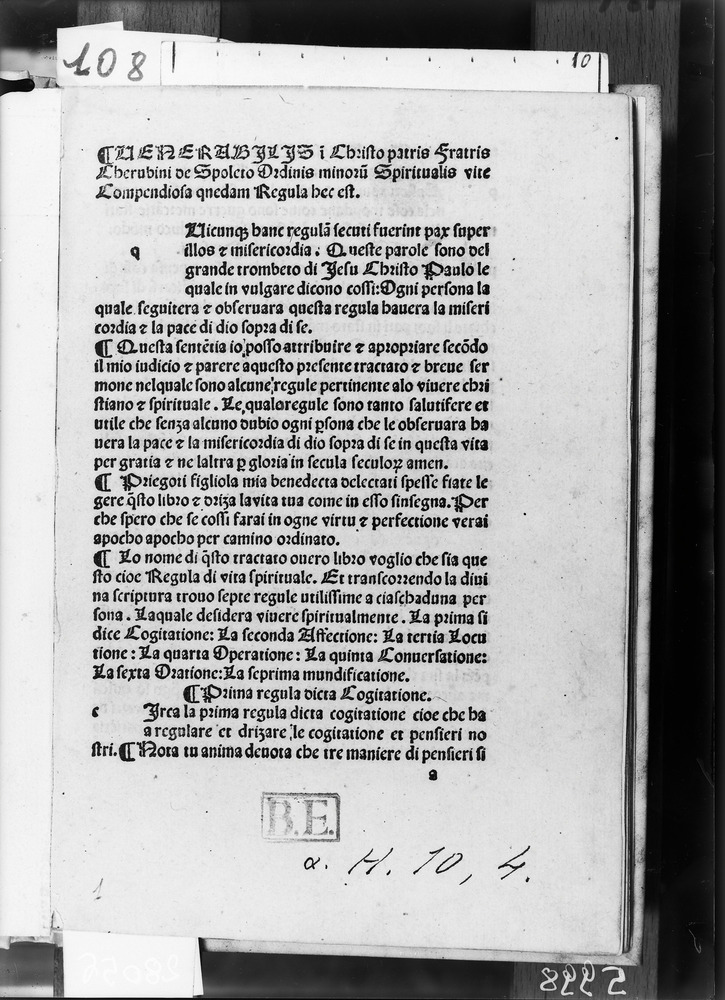 108
10
¶UENERABILIS ī Christo patris Fratris
Cherubini de Spoleto Ordinis minorū Spiritualis vite
Compendiosa quedam Regula hec est.
q
Uicunqʒ hanc regulā secuti fuerint pax super
illos ⁊ misericordia. Queste parole sono del
grande trombeto di Jesu Christo Paulo le
quale in vulgare dicono cossi:Ogni persona la
quale seguitera ⁊ observara questa regula havera la miseri
cordia ⁊ la pace di dio sopra di se.
¶ Questa sentētia io posso attribuire ⁊ apropriare secōdo
il mio iudicio ⁊ parere aquesto presente tractato ⁊ breue ser
mone nelquale sono alcune regule pertinente alo viuere chri
stiano ⁊ spirituale. Le qualoregule sono tanto salutifere et
utile che senza alcuno dubio ogni ꝑsona che le obseruara ha
uera la pace ⁊ la misericordia di dio sopra di se in questa vita
per gratia ⁊ ne laltra ꝑ gloria in secula seculoꝝ amen.
¶ Priegoti figliola mia benedecta delectati spesse fiate le
gere q̄sto libro ⁊ driza lavita tua come in esso sinsegna.Per
che spero che se cossi farai in ogne virtu ⁊ perfectione verai
apocho apocho per camino ordinato.
¶ Lo nome di q̄sto tractato ouero libro voglio che sia que
sto cioe Regula di vita spirituale. Et transcorrendo la diui
na scriptura trouo septe regule utilissime a ciaschaduna per
sona. Laquale desidera viuere spiritualmente. La prima si
dice Cogitatione: La seconda Affectione: La tertia Locu
tione: La quarta Operatione: La quinta Conuersatione:
La sexta Oratione:La seprima mundificatione.
¶Prima regula dicta Cogitatione.
c Irca la prima regula dicta cogitatione cioe che ha
a regulare et drizare le cogitatione et pensieri no
stri.¶Nota tu anima deuota che tre maniere di pensieri si
a
B.E.
α. H. 10, 4.
1
28056
5998